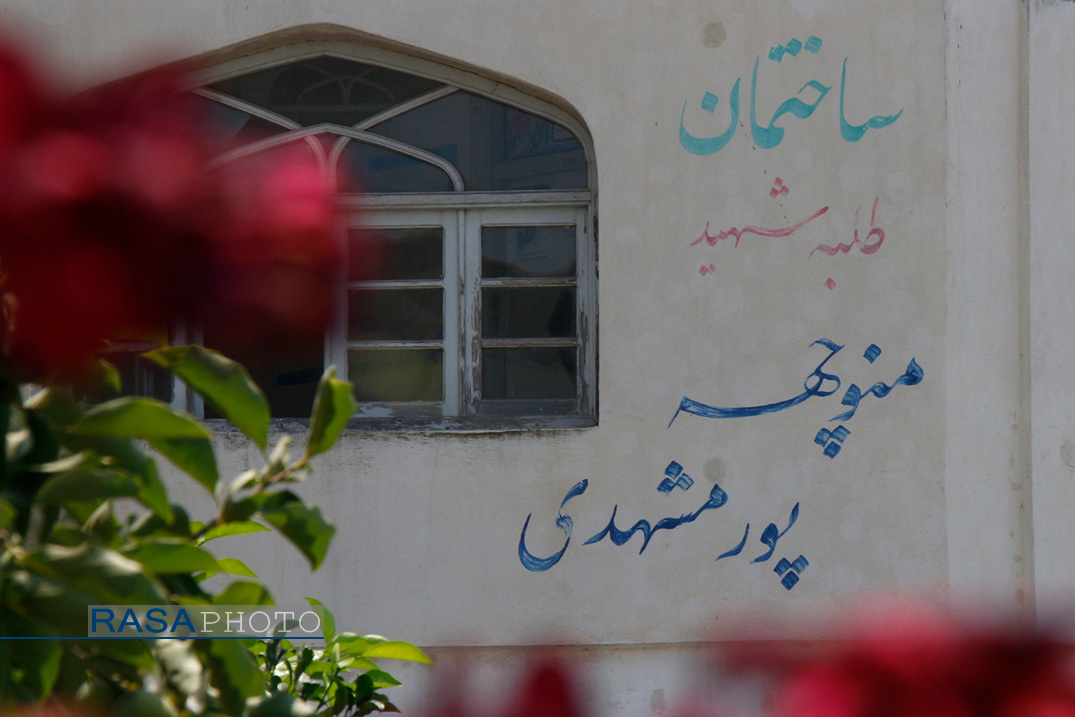 ساختمان
طلبه شهید
منوچهر
پور مشهدی
RASAPHOTO